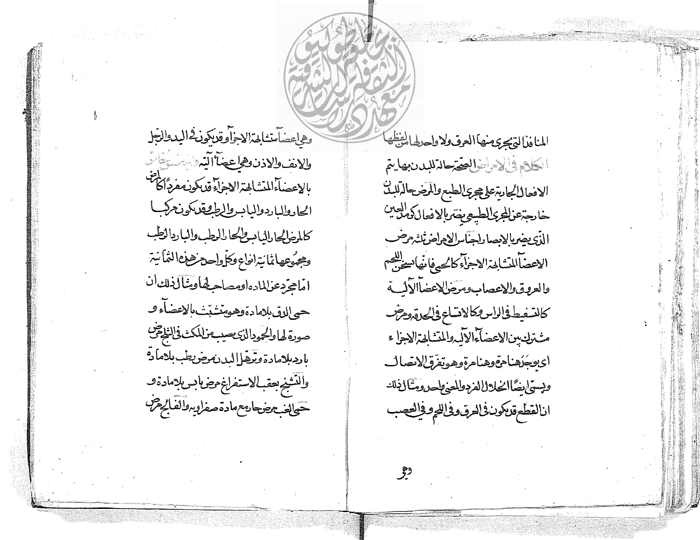 المنافذ التي يجري منها العرق ولا واحد لها من لفظها
الكلام في الامراض الصحة حالة للبدن بها يتم
الافعال الجارية على مجرى الطبع والمرض حالة للبدن
خارجة عن المجرى الطبيعي يضر بالافعال كورم العين
الذي يضر بالابصار اجناس الامراض ثلثة مرض
الاعضآ المتشابهة الاجزآء كالحمى فانها سخن اللحم
والعروق والاعصاب ومرض الاعضآ الآلية
كالتسفيط في الراس وكالاتساع في الحدقة ومرض
مشترك بين الاعضآء الآلية والمتشابهة الاجزاء
اي يوجد هنا مرة وهنا مرة وهو تفرق الاتصال
ويسمى ايضًا انحلال الفرد والمعنى واحد ومثال ذلك
ان القطع قد يكون في العرق وفي اللحم وفي العصب
وهي
وهي اعضآ متشابهة الاجزآ وقد يكون في اليد والرجل
والانف والاذن وهي اعضآ آلية
بالاعضآء المتشابهة الاجزاء قد يكون مفردًا كالمرض
الحار والبارد واليابس والرطب وقد يكون مركبا
كالمرض الحار اليابس والحار الرطب والبارد الرطب
ومجموعها ثمانية انواع وكل واحد من هذه الثمانية
اما مجرد عن الماده او مصاحب لها ومثال ذلك ان
حمى الدق بلا مادة وهو متشبث بالاعضآء و
صورة لها والجمود الذي يصيب من المكث في الثلج مرض
بارد بلا مادة وترهل البدن مرض رطب بلا مادة
والتشنج بعقب الاستفراغ مرض يابس بلا مادة و
حمى الغب مرض حار مع مادة صفراويه والفالج مرض